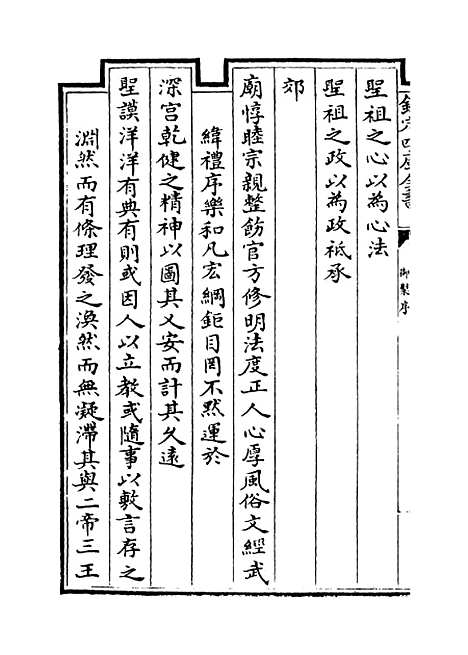 欽定四庫全書
御製序
聖祖之心以為心法
聖祖之政以為政祗承
郊
廟惇睦宗親整飭官方修明法度正人心厚風俗文經武
緯禮序樂和凡宏綱鉅目罔不默運於
深宫乾健之精神以圖其乂安而計其久遠
聖謨洋洋有典有則或因人以立教或隨事以敷言存之
淵然而有條理發之渙然而無凝滯其與二帝三王